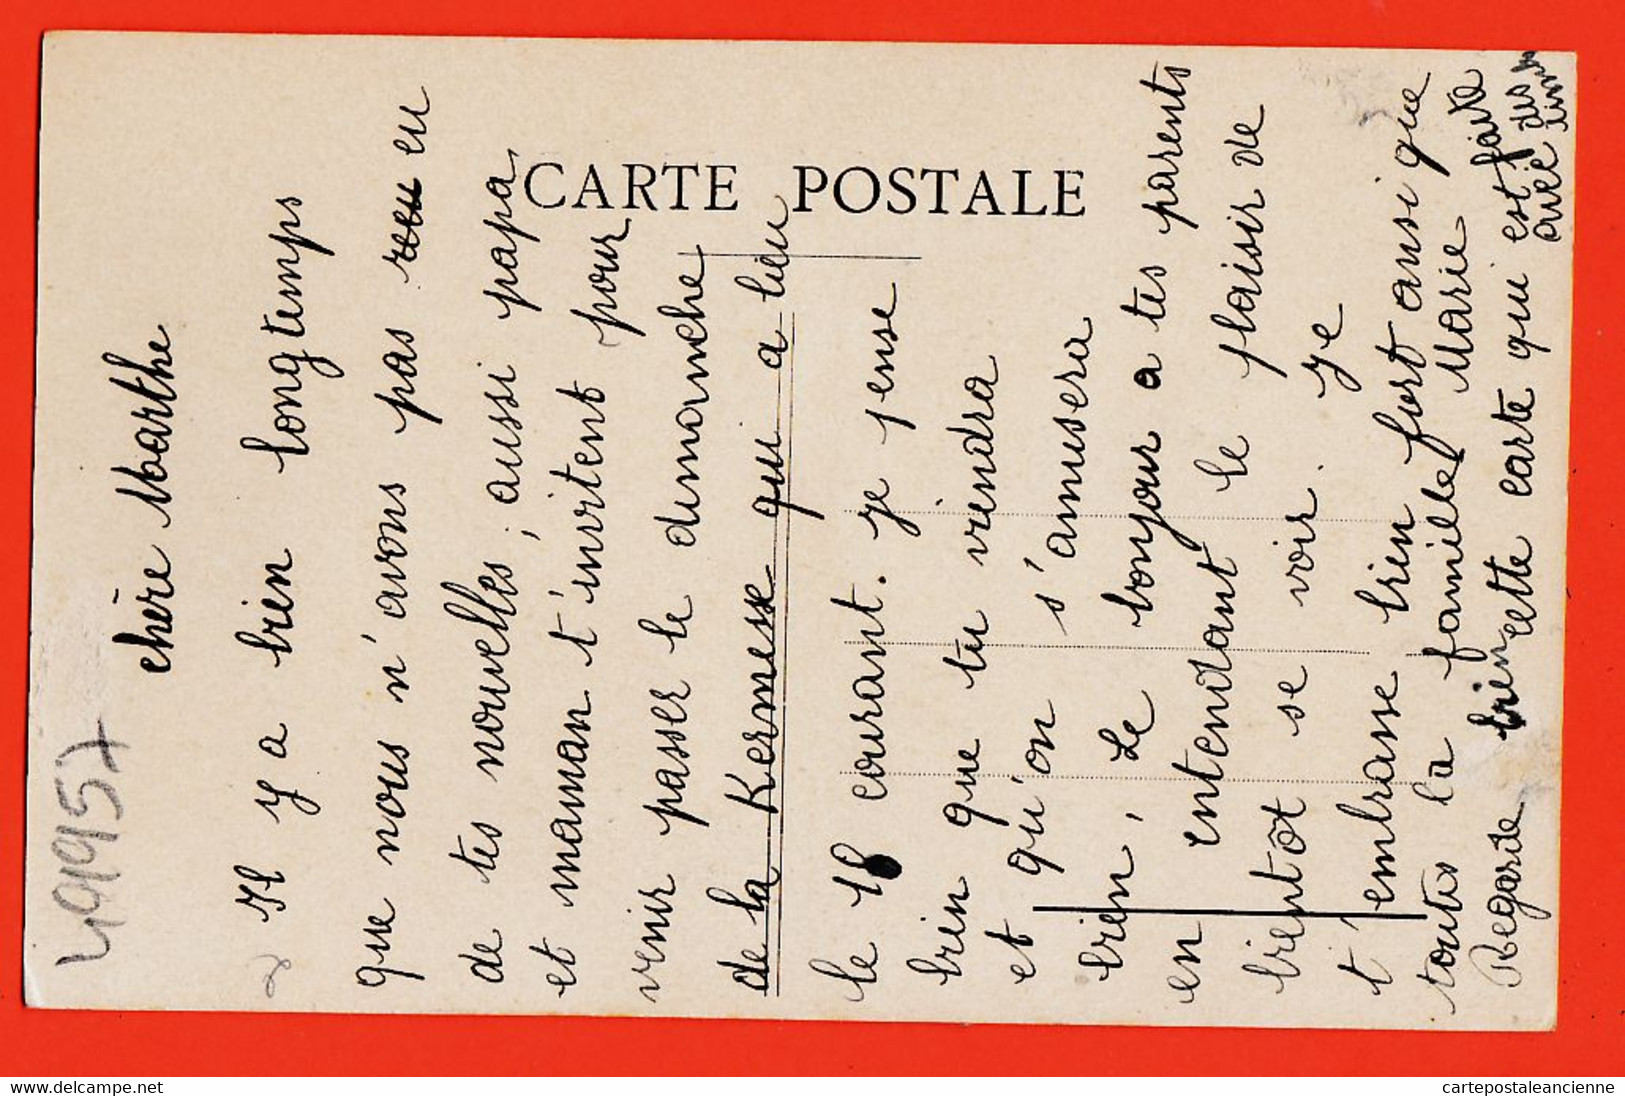 CARTE POSTALE
49957
chère Marthe
Il y a bien longtemps
que nous n'avons pas reu eu
de tes nouvelles, aussi papa
et maman t'invitent pour
venir passer le dimanche
de la Kermesse qui a lieu
le 18 courant. je pense
bien que tu viendra
et qu'on s'amusera
bien, Le bonjour a tes parents
en entendant le plaisir de
bientôt se voir. Je
t'embrasse bien fort ansi que
toutes la famille Marie
Regarde bien cette carte qui est faite
avec des
delcampe.net
cartepostaleancienne